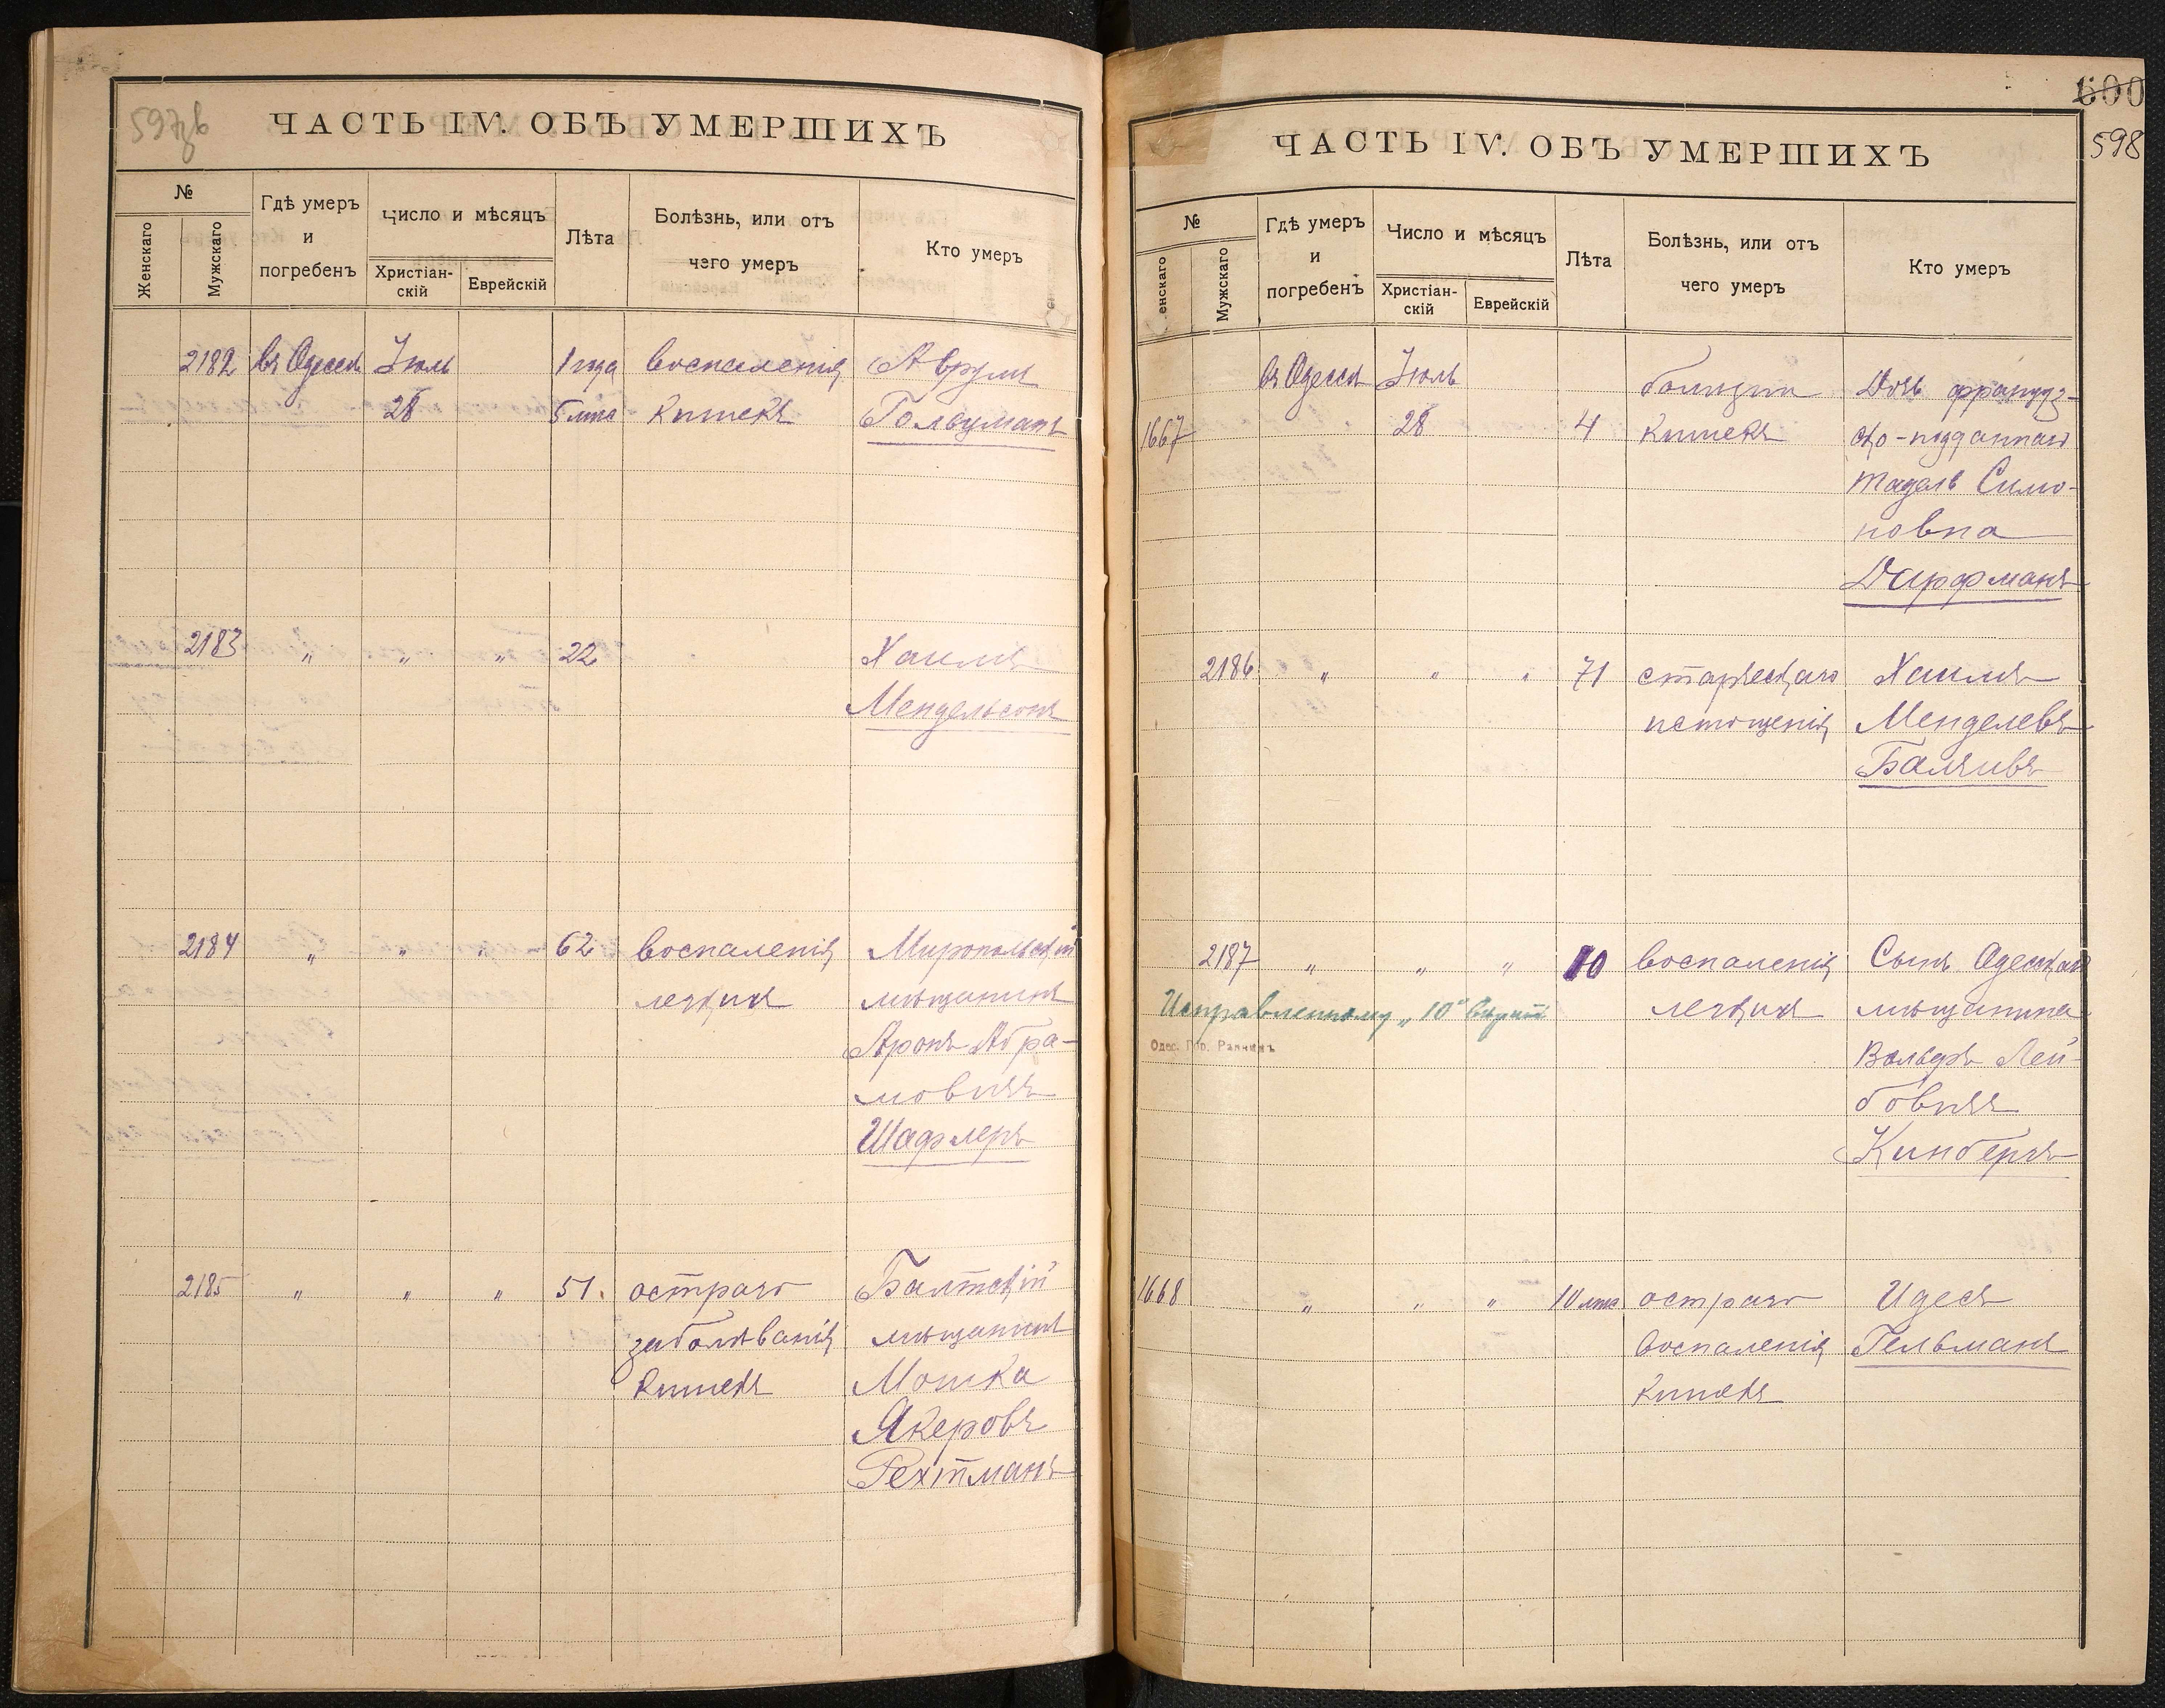 597об
ЧАСТЬ IV. ОБЪ УМЕРШИХЪ
№
Женскаго
Мужскаго
Гдѣ умеръ
и
погребенъ
Число и мѣсяцъ
Христіан-
скій
Еврейскій
Лѣта
Болѣзнь, или отъ
чего умеръ
Кто умеръ
2182 въ Одессѣ Іюль 1 года воспаленія Аврумъ
28 5 мѣс кишекъ
2183 " " " 22 Хаимъ
Мендельсонъ
2184 " " 62 воспаленія Миропольскій
легкихъ мѣщанинъ
Аронъ Абра-
мовичъ
Шафлеръ
2185 " " " 51. остраго Балтскій
заболѣванія мѣщанинъ
кишекъ Мошка
Якеровъ
Рехтманъ
600
598
ЧАСТЬ IV. ОБЪ УМЕРШИХЪ
№
енскаго
Мужскаго
Гдѣ умеръ
и
погребенъ
Число и мѣсяцъ
Христіан-
скій
Еврейскій
Лѣта
Болѣзнь, или отъ
чего умеръ
Кто умеръ
въ Одессѣ Іюль Дочь француз-
1667 28 4 кишекъ ско-подданнаго
Симо-
новна
Дирфманъ
2186 " " " 71 старческаго Хаимъ
истощенія Менделевъ
2187 " " " 10 воспаленія Сынъ Одесскаго
Исправленному „10" вѣрить легкихъ мѣщанина
Одес. Гор. Раввинъ
Вольфъ Лей-
бовичъ
Кинбергъ
1668 " " " 10 мѣс остраго Идесъ
воспаленія Гельманъ
кишекъ